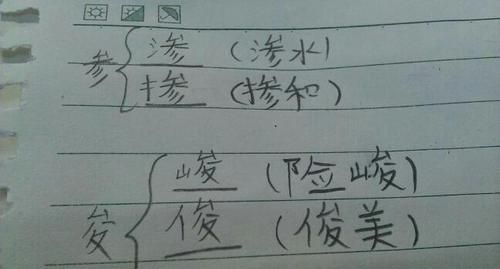 参
渗 (渗水)
掺 (掺和)
夋
峻 (险峻)
俊 (俊美)